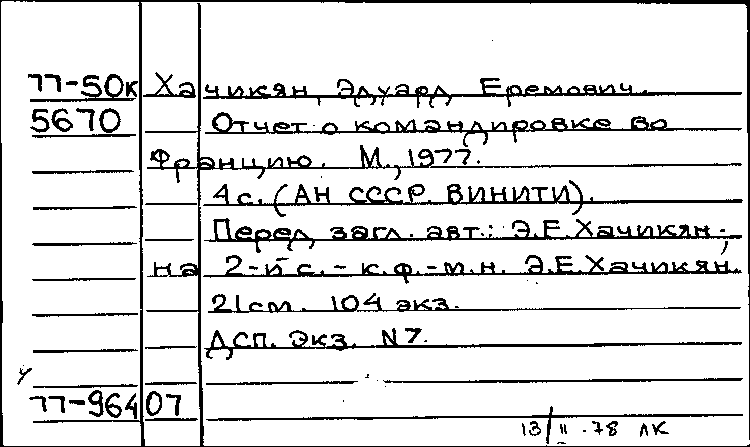 77-50к Хачикян, Эдуард Еремович.
5670 Отчет о командировке во
Францию. М., 1977.
4с. (АН СССР. ВИНИТИ).
Перед загл. авт.: Э.Е.Хачикян;
на 2-й с. - к.ф.-м.н. Э.Е.Хачикян.
21см. 104 экз.
ДСП. Экз. N7.
у
77-96407
13/II-78 ЛК